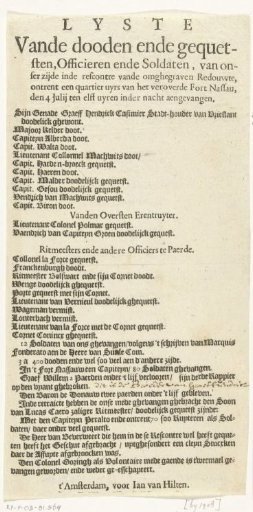 LYSTE
Vande dooden ende gequet-
sten, Officieren ende Soldaten, van on-
ser zijde inde rescontre vande omghegraven Redouvte,
ontrent een quartier uyrs van het veroverde Fort Nassau,
den 4 Julij ten elff uyren inder nacht aengevangen.
Sijn Genade Graeff Hendrick Casimier Stadt-houder van Vrieslant
doodelijck ghewont.
Majoor Kelder doot.
Capiteyn Alberda doot.
Capit. Walta doot.
Lieutenant Collonnel Machwits doot/
Capit. Harden-broeck gequetst.
Capit. Haeren doot.
Capit. Malder doodelijck gequetst.
Capit. Gesou doodelijck gequetst.
Hendrick van Machwits gequetst.
Capit. Biron doot.
Vanden Oversten Erentruyter.
Lieutenant Colonel Polmar gequetst.
Vaendrich van Capiteyn Groen doodelijck gequetst.
Ritmeesters ende andere Officiers te Paerde.
Collonel la Force gequetst.
Franckenburgh doodt.
Ritmeester Bolswart ende sijn Cornet doodt.
Wenge doodelijck ghequetst.
gequetst met sijn Cornet.
Lieutenant van Verneuil doodelijck gequetst.
Wageman vermist.
Louwerbach vermist.
Lieutenant van la Force met de Cornet gequetst.
Cornet Coninck ghequetst.
Soldaten van ons ghevangen/volgens 't schrijven van Marquis
Fonderato aen de Heere van Sinte Com.
400 dooden ende veel soo deel aen d'andere zijde.
In 't Fort Nassau een Capiteyn 80 Soldaten ghevangen.
Graef Willem 2 Paerden onder 't lijf verlooren/ sijn derde Rappier
op den vyant ghebroken.
Den Baron de Bonauw twee paerden onder 't lijf gebleven.
Inde retraicte hebben de onse mede ghevangen ghebracht den Soon
van Lucas Caero zaliger Ritmeester/ doodelijck gequetst zijnde:
Met den Capiteyn Peralto ende ontrent 70 soo Ruyteren als Sol-
daten/ daer onder veel gequetst.
De Heer van Beverweert die hem in de se Rescontre wel heeft gequeten
heeft het Geschut afgebracht / uytghesondert een cleyn Stucxken
daer de Affuyte afgebroocken was.
Den Colonel Gozingh als Volontaire mede gaende is tweemael ge-
vangen geworden/ ende weder ge-eschappeert.
t'Amsterdam, voor Ian van Hilten.